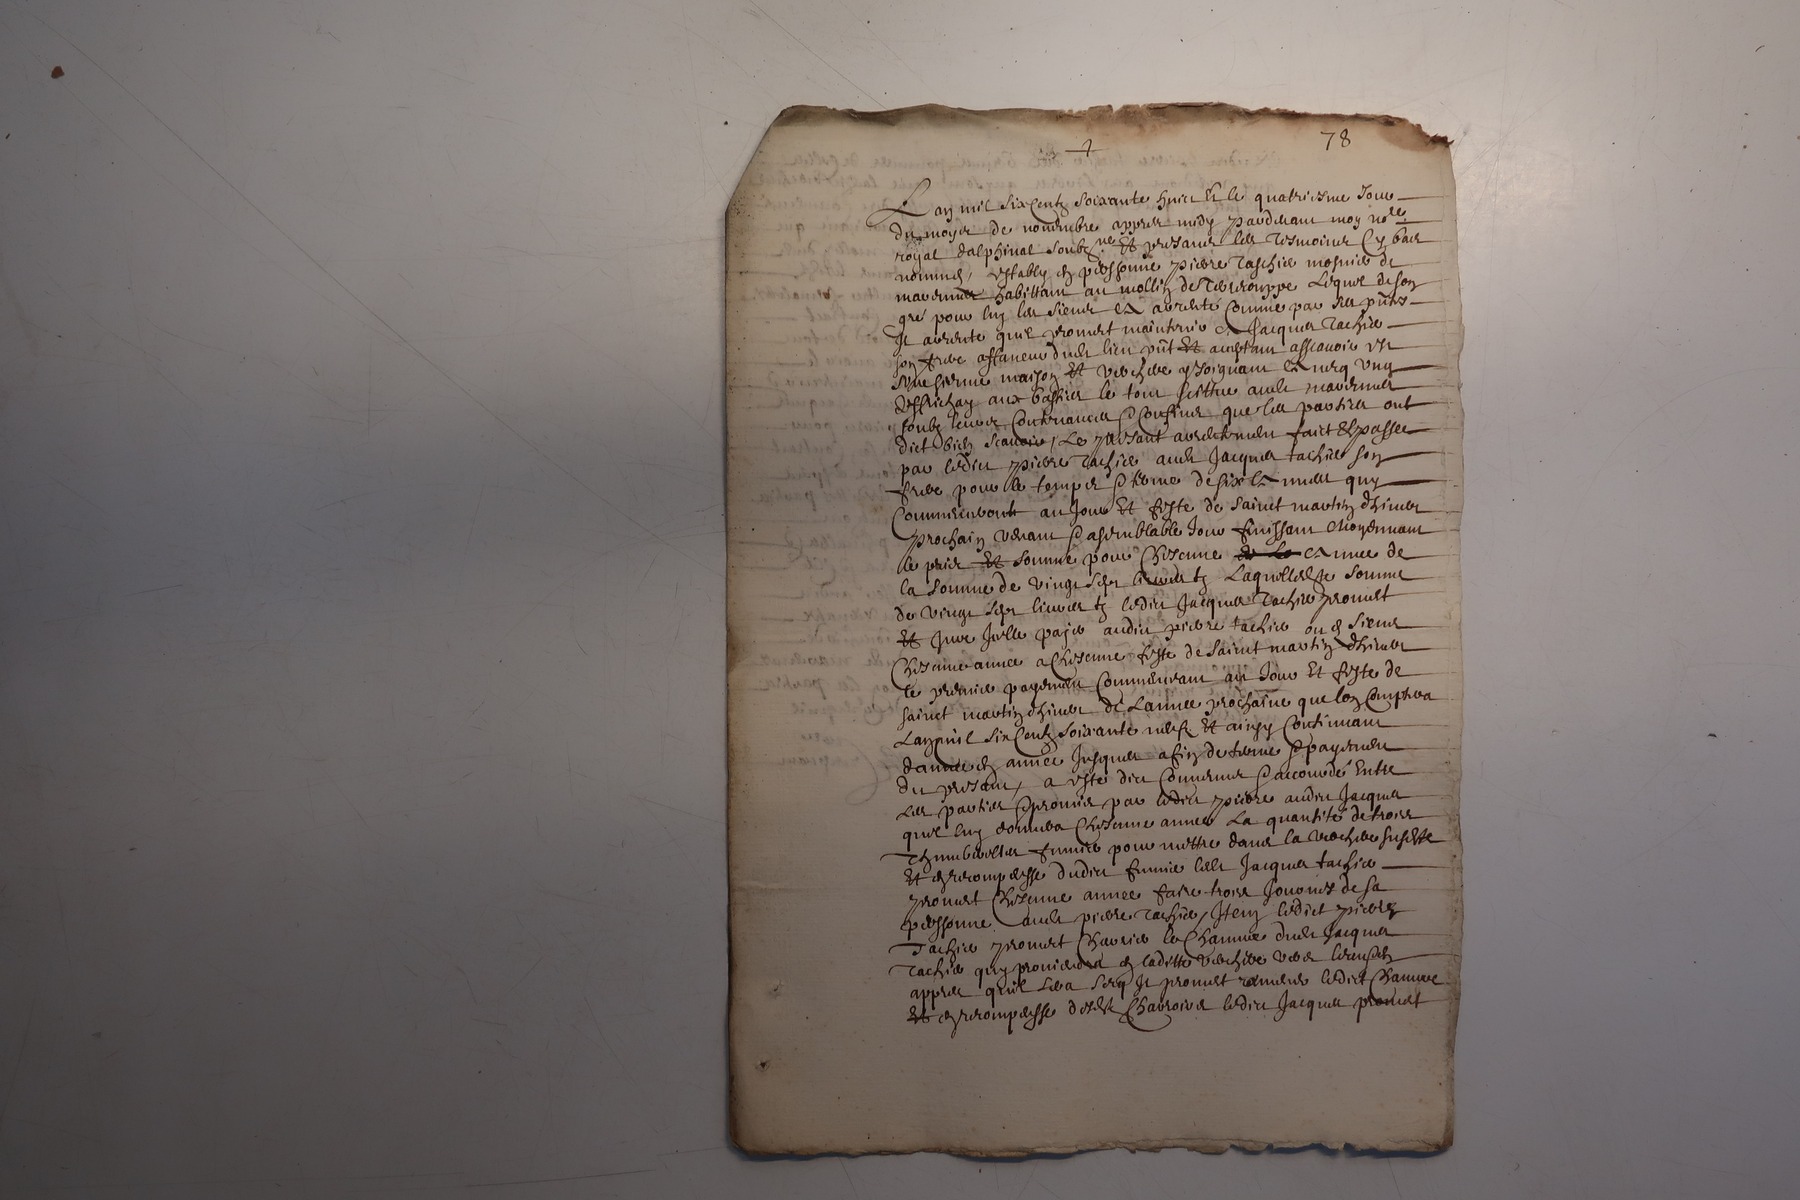 78
L an mil six centz soixante huict et le quatriesme jour
du moys de novembre appres midy pardevant moy no.re
royal dalphinal soubz.ne et presants les tesmoins cy bas
nommés, estably en personne pierre tachie mosnier de
habittant au mollin de lequel de son
gré pour luy les siens a arrenté comme par ces pnts
Il arrente quil promet maintenir a Jacques tachie
son frere affaneur dudt lieu pnt et aceptant assavoir
sienne maison et verchere y joignant
aux le tout scittue audt
soubz leurs contenances & confins que les parties ont
dict bien scavoir, Le presant arrentement faict et passé
par ledict pierre tachie audt Jacques tachie son
frere pour le temps & terme de six annees quy
commenceront au jour et feste de saint martin dhiver
prochain venant & a semblable jour finissant moyennant
le prix et somme pour chescune annee de
la somme de vingt sept livres tz laquelle somme
de vingt sept livres tz ledict Jacques tachie promet
et payer audict pierre tachie ou es siens
chescune annee a chescune feste de saint martin dhiver
le premier payement commensant au jour et feste de
sainct martin dhiver de lannee prochaine que lon comptera
Lan mil six centz soixante neuf et ainsy continuant
dannee en annee jusques a fin de terme & payement
du presant, a esté dict convenu & accourdé entre
Les parties & promis par ledict pierre audict Jacques
quil luy donnera chescune annee La quantité de trois
fumier pour mettre dans la verchere susdtte
et en recompense dudict fumier ledt Jacques tachie
promet chescune annee faire trois journees de sa
personne audt pierre tachie, Item ledict pierre
Tachie promet charrier le chanvre dudt Jacques
tachie quy proviendra en laditte verchere
appres quil sera secq Il promet ledict chanvre
et en recompense charroirs ledict Jacques promet